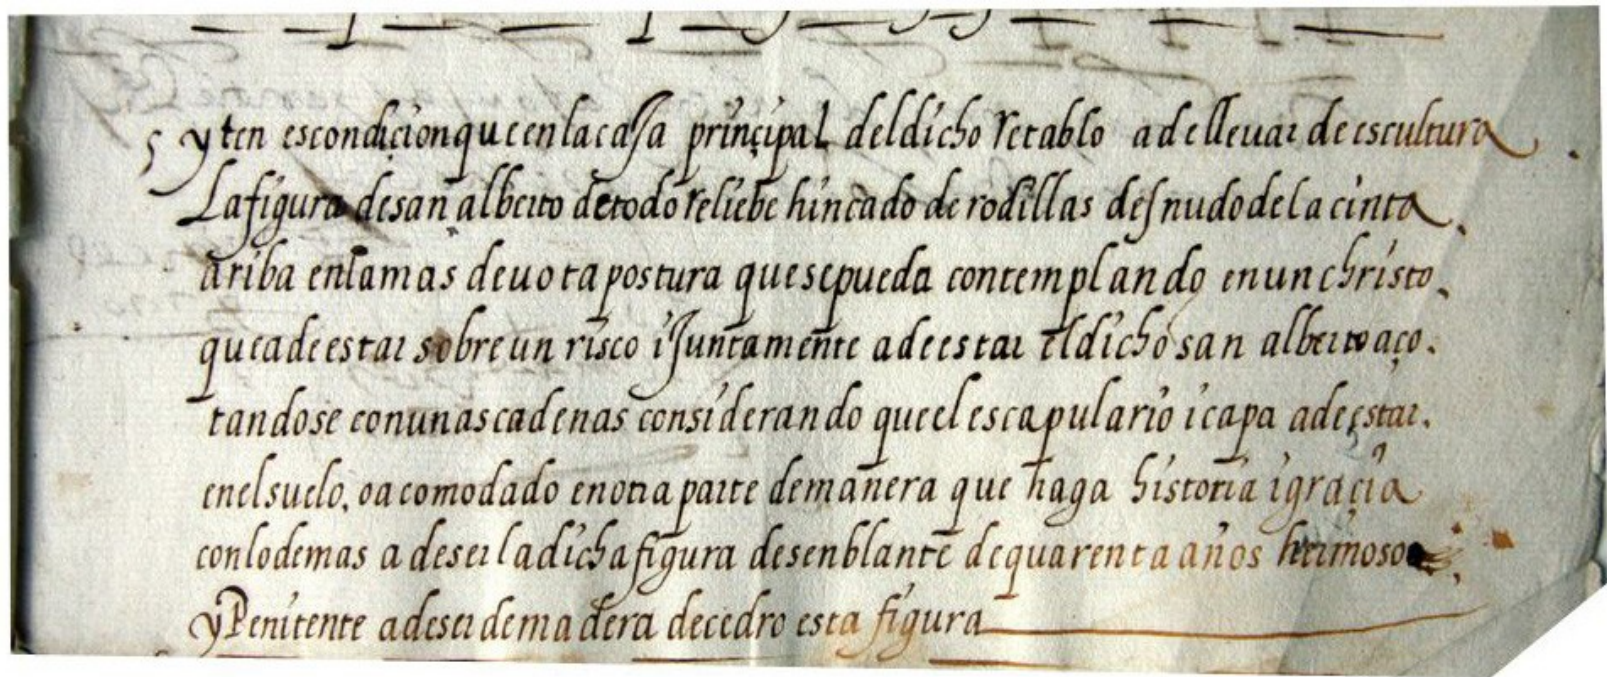 5 yten es condiçion que en la casa prinçipal del dicho retablo a de lleuar de escultura
La figura de san alberto de todo reliebe hincado de rodillas desnudo de la cinta
ariba en la mas deuota postura que se pueda contemplando en un christo
que a de estar sobre un risco i juntamente a de estar el dicho san alberto aço
tandose con unas cadenas considerando que el escapulario i capa a de estar
en el suelo, o acomodado en otra parte de manera que haga historia i graçia
con lo demas a de ser la dicha figura de senblante de quarenta años hermoso
y Penitente a de ser de madera de cedro esta figura